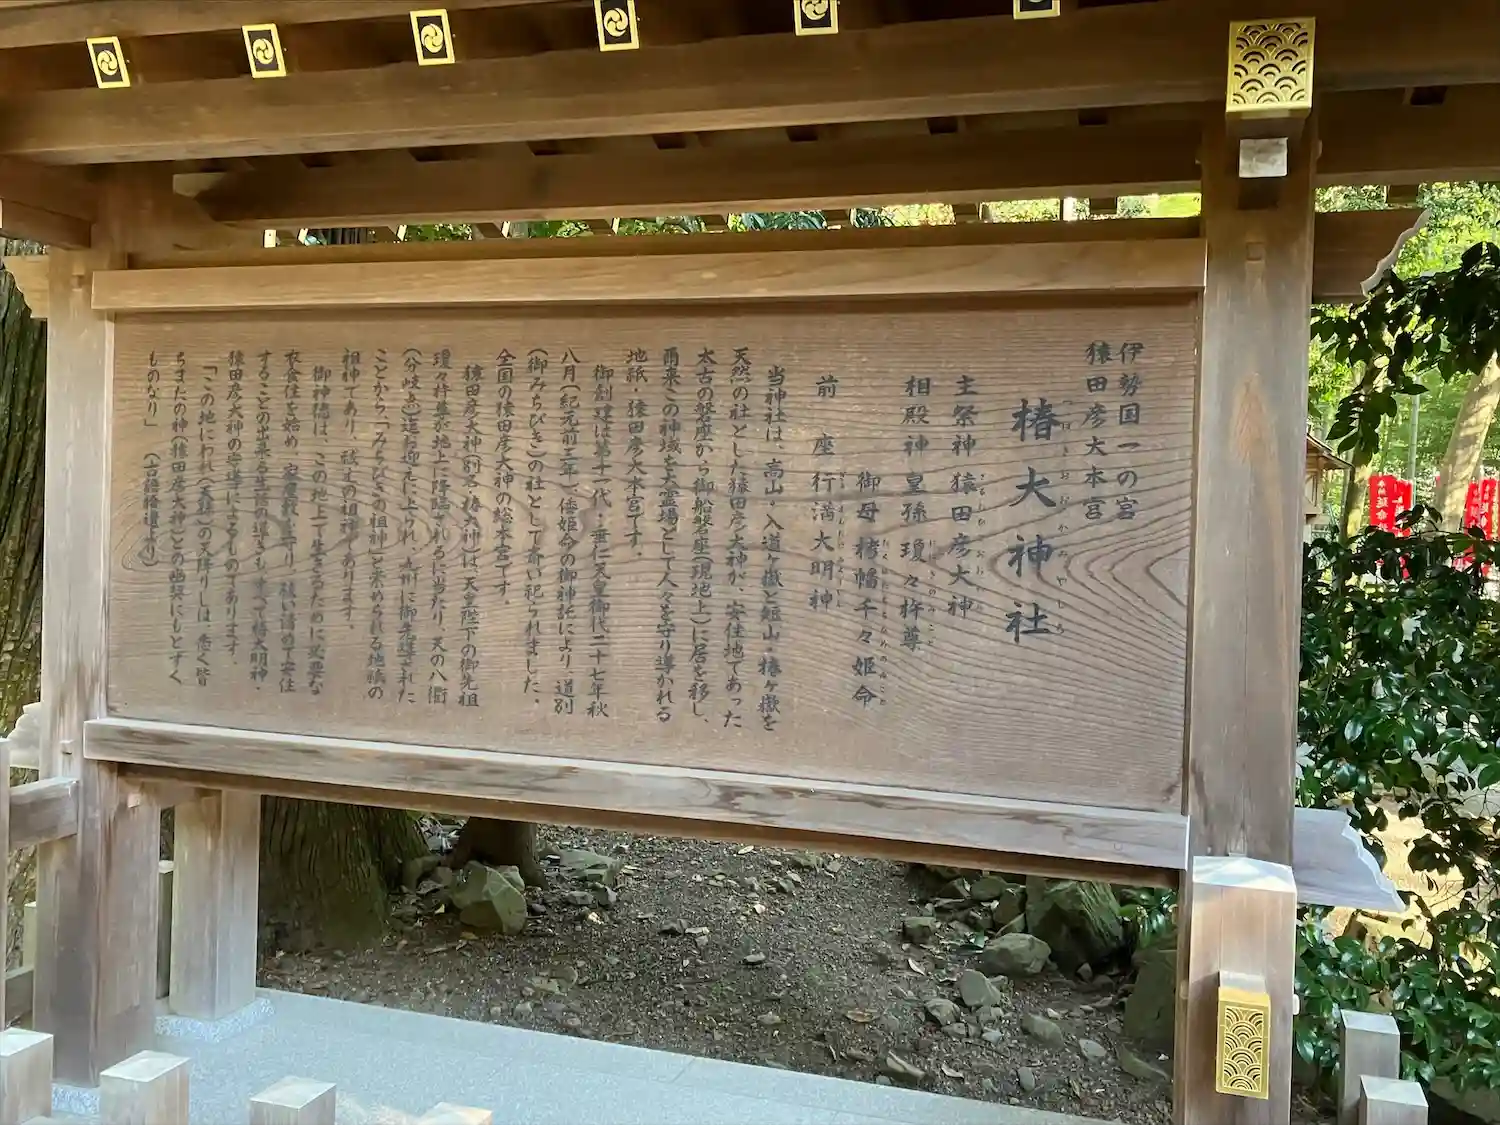 伊勢国一の宮
猿田彦大本宮
椿大神社
つばきおおかみやしろ
主祭神 猿田彦大神
さるたひこおおかみ
相殿神 皇孫 瓊々杵尊
ににぎのみこと
御母 栲幡千々姫命
たくはたちぢひめのみこと
前座 行満大明神
ぎょうまんだいみょうじん
当神社は、高山・入道ヶ嶽と短山・椿ヶ嶽を
天然の社とした猿田彦大神が、安住地であった
太古の磐座から御船磐座(現地上)に居を移し、
爾来この神域を大霊場として人々を守り導かれる
地祇・猿田彦大本宮です。
御創建は第十一代・垂仁天皇御代二十七年秋
八月(紀元前三年)、倭姫命の御神託により、道別
(御みちびき)の社として斎い祀られました。
全国の猿田彦大神の総本宮です。
猿田彦大神(別名・椿大神)は、天皇陛下の御先祖
瓊々杵尊が地上に降臨されるに当たり、天の八衢
(分岐点)迄お迎えに上られ、九州に御先導された
ことから、「みちびきの祖神」と崇められる地祇の
祖神であり、祓いの祖神であります。
御神徳は、この地上で生きるために必要な
衣食住を始め、家屋敷を守り、祓い清めて安住
することの出来る生活の導きも、すべて椿大明神・
猿田彦大神の先導によるものであります。
「この地にわれ(天孫)の天降りしは、悉く皆
ちまたの神(猿田彦大神)との幽契にもとずく
ものなり」 (古語拾遺より)